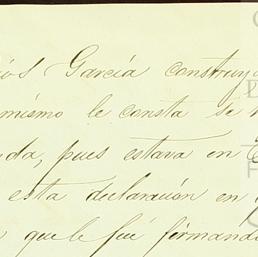 ios García construyó
mismo le consta se
da, pues estava en
esta declaración en
que le fué firmando